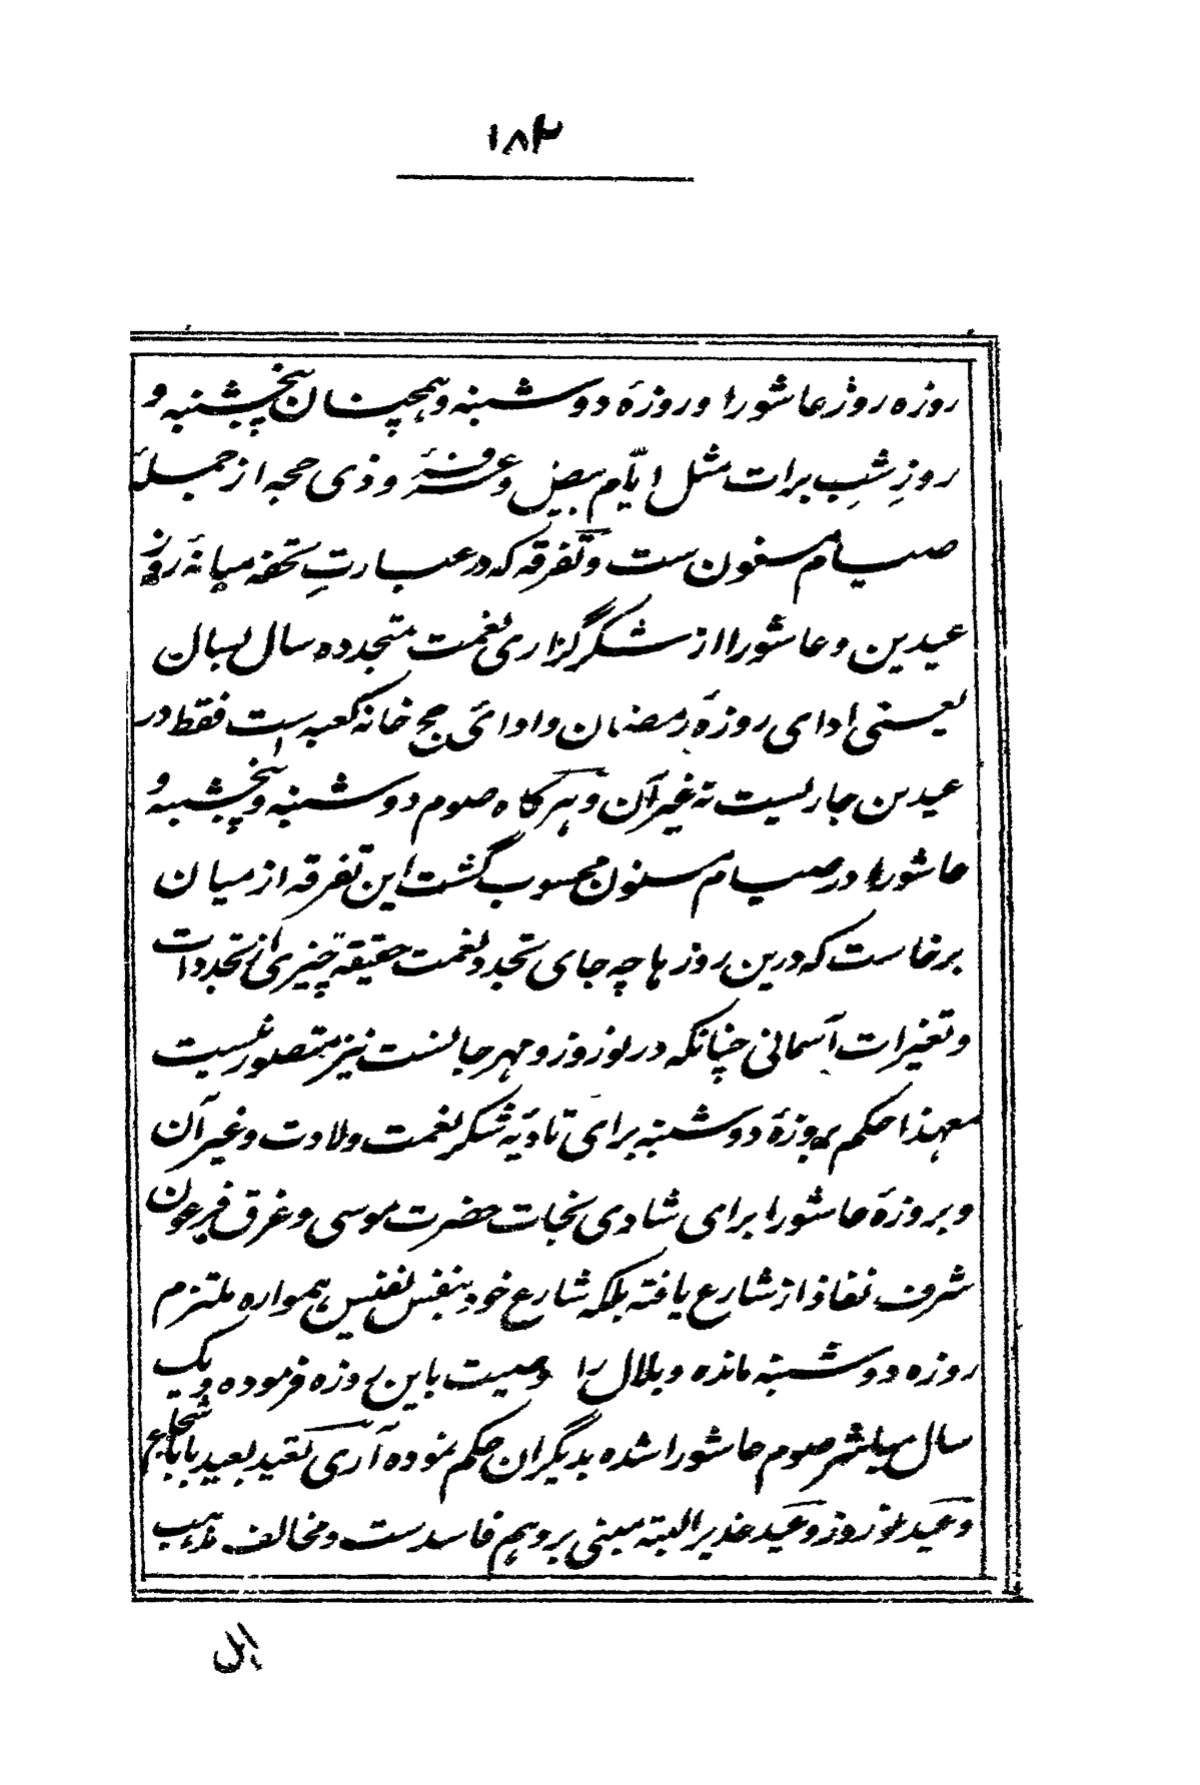 ۱۸۳
روزه روز عاشورا و روزهٔ دوشنبه و همچنان پنجشنبه و
روزِ شبِ برات مثل ایّام بیض و عرفهٔ و ذی حجه از جملهٔ
صیام مسنون ست و تفرقه که در عبارتِ تحفه میانهٔ روز
عیدین و عاشورا از شکرگزاری نعمت متجدده سال بسال
یعنی ادای روزهٔ رمضان و ادائ حج خانه کعبه ست فقط در
عیدین جاریست نه غیر آن و هرگاه صوم دوشنبه و پنجشنبه و
عاشورا در صیام مسنون محسوب گشت این تفرقه از میان
برخاست که درین روزها چه جای تجدد نعمت حقیقةً چیزی از تجددات
و تغیرات آسمانی چنانکه در نوروز و مهرجانست نیز متصور نیست
معهذا حکم بروزهٔ دوشنبه برای تادیهٔ شکر نعمت ولادت و غیر آن
و بروزهٔ عاشورا برای شادی نجات حضرت موسی و غرق فرعون
شرف نفاذ از شارع یافته بلکه شارع خود بنفس نفیس همواره ملتزم
روزه دوشنبه مانده و بلال را وصیت باین روزه فرموده و یک
سال مباشر صوم عاشورا شده بدیگران حکم نموده آری تعید بعید بابا شجاع
و عید نوروز و عید غدیر البته مبنی بر وهم فاسدست و مخالف مذهب
اهل